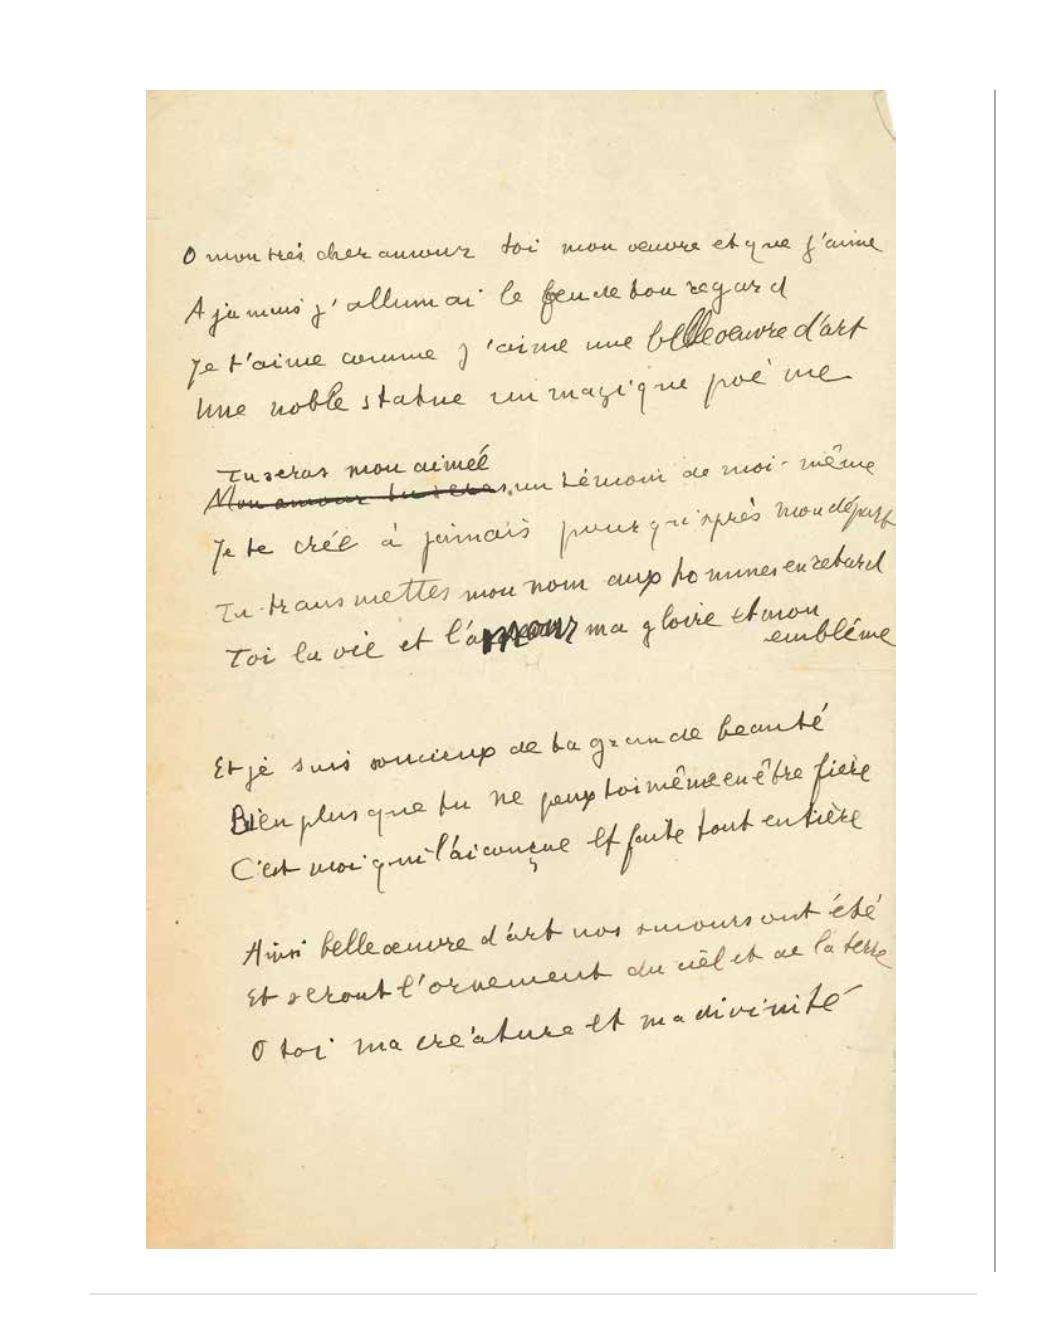 O mon très cher amour toi mon œuvre et que j'aime
A jamais j'allumai le feu de ton regard
Je t'aime comme j'aime une belle œuvre d'art
Une noble statue un magique poème
Tu seras mon aimée
Mon amour tu seras un témoin de moi-même
Je te crée à jamais pour qu'après mon départ
Tu transmettes mon nom aux hommes en retard
Toi la vie et l'amour ma gloire et mon
emblème
Et je suis soucieux de ta grande beauté
Bien plus que tu ne peux toi même en être fière
C'est moi qui l'ai conçue et faite tout entière
Ainsi belle œuvre d'art nos amours ont été
Et seront l'ornement du ciel et de la terre
O toi ma créature et ma divinité